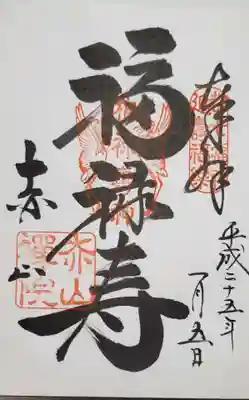 奉拝
平成二十五年
一月五日
福禄寿
赤山
赤山
禅院